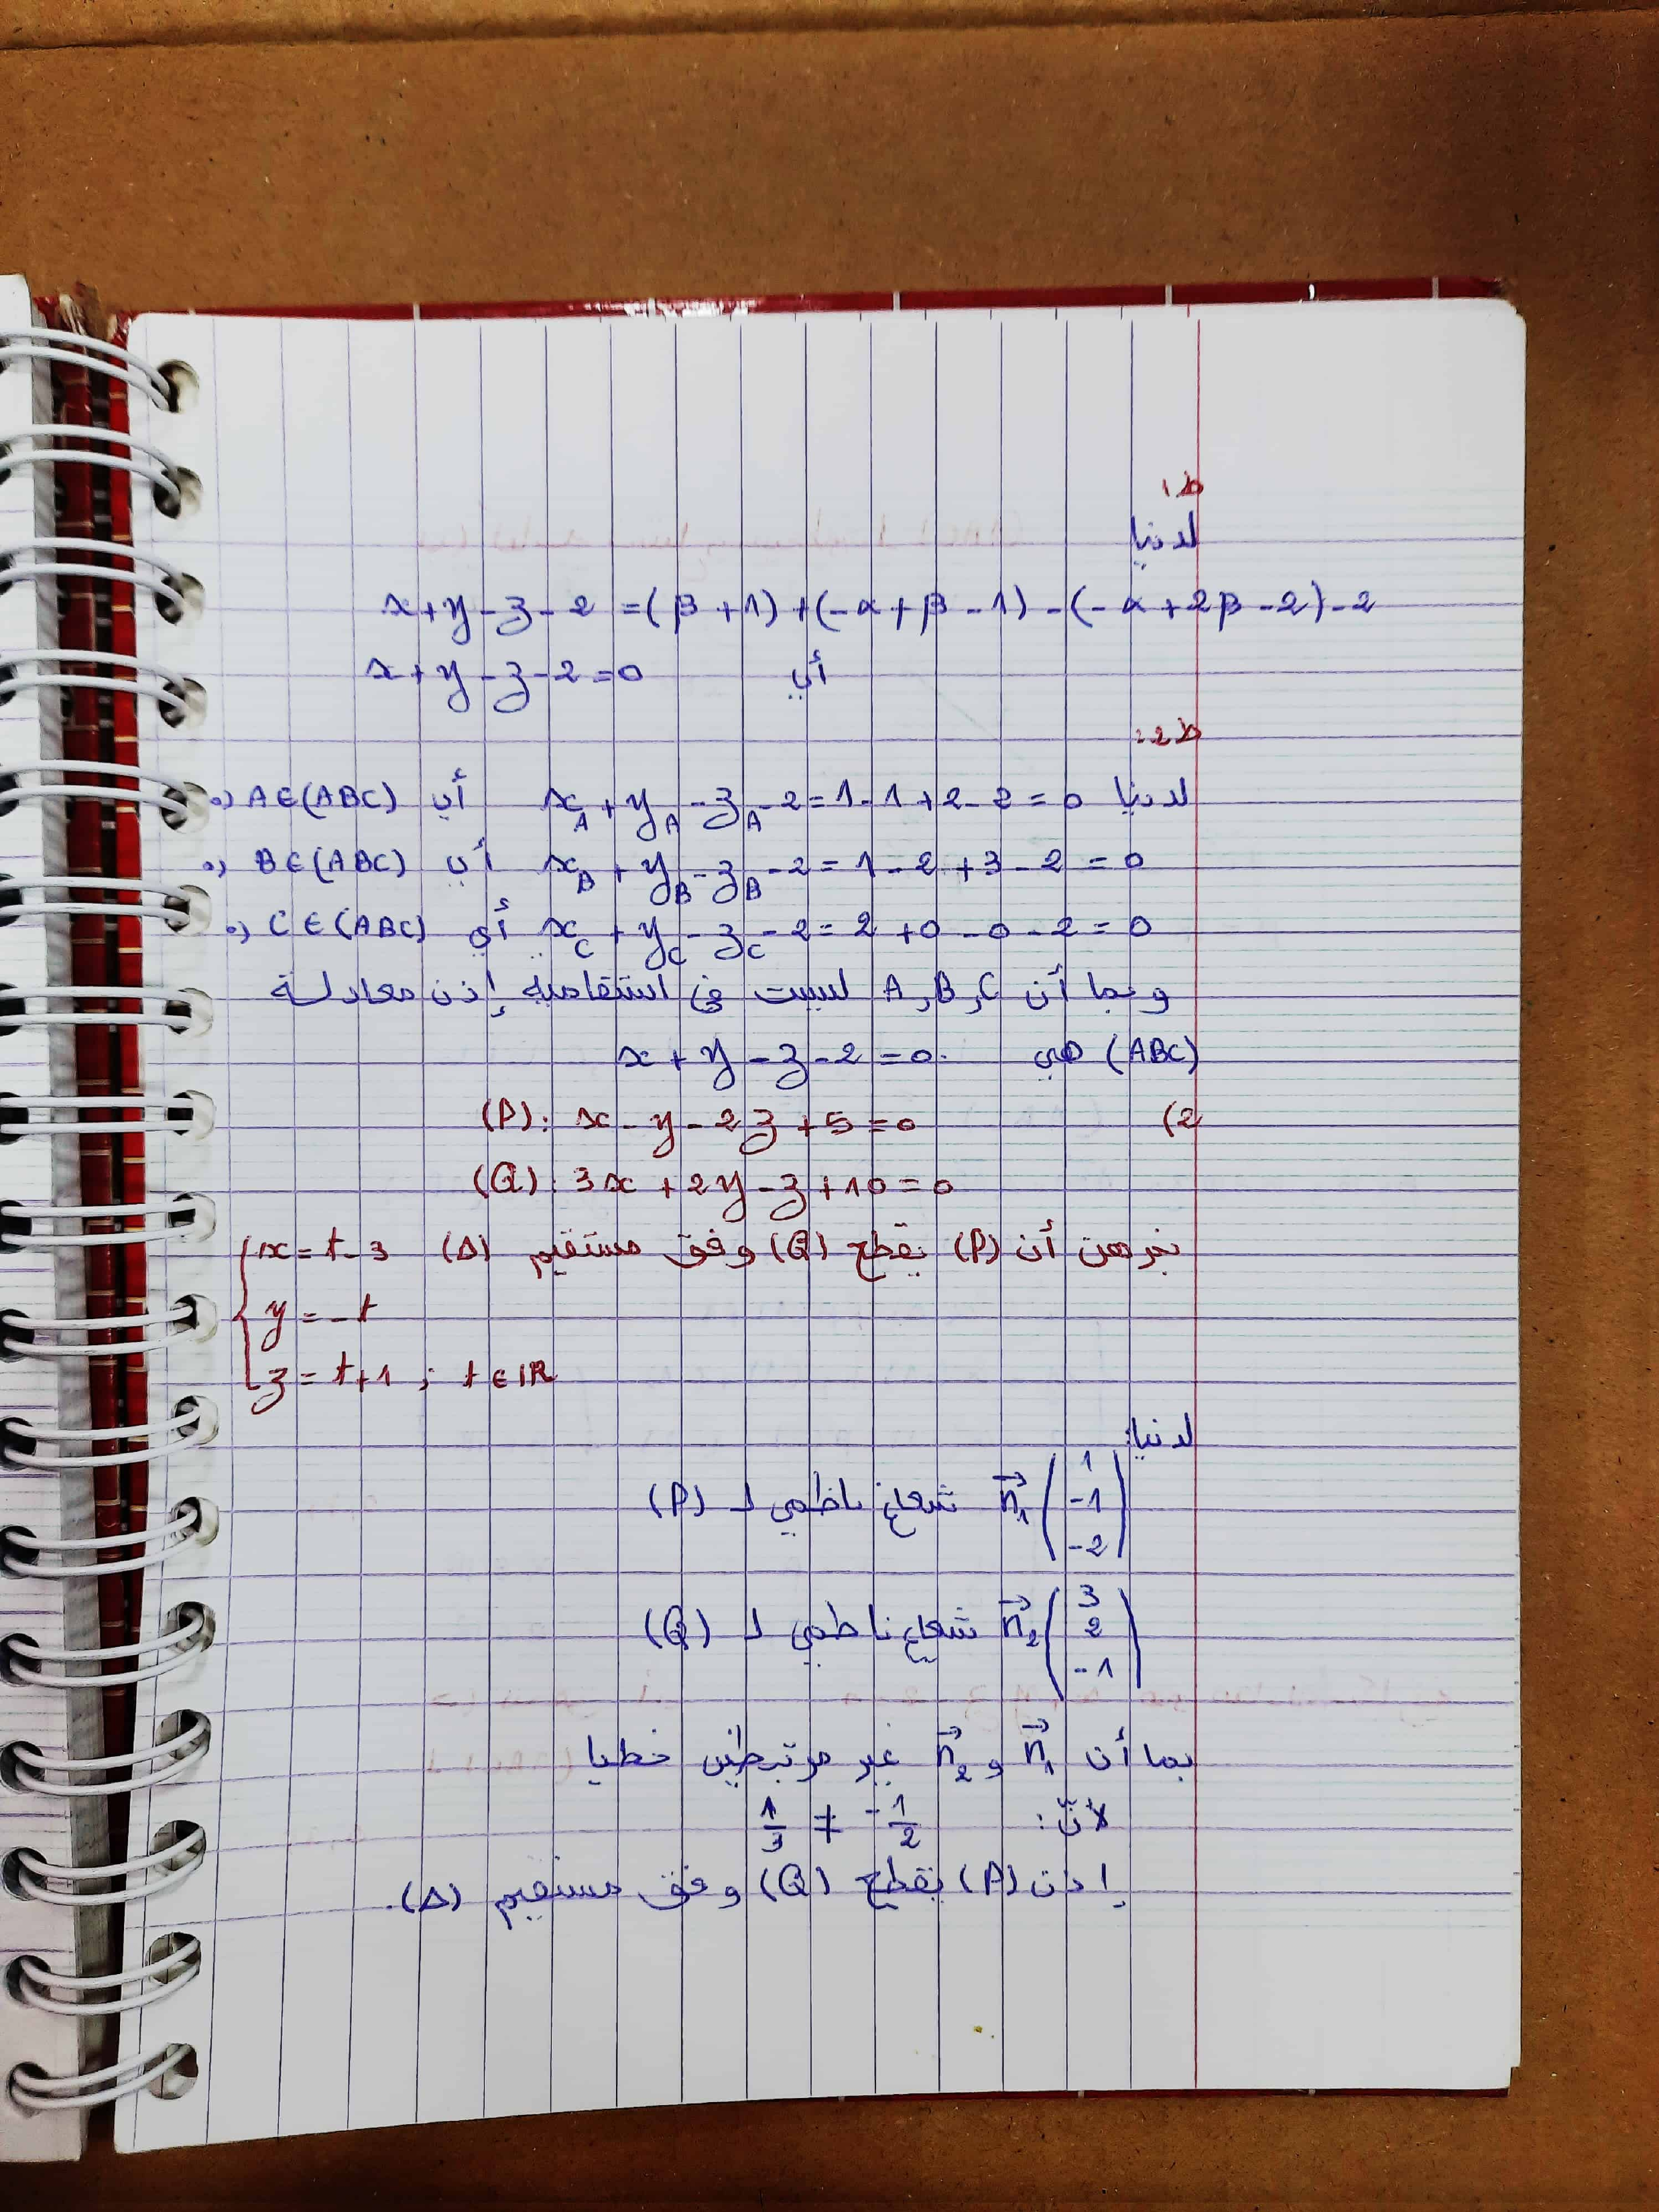 ط1
لدينا
x+y-z-2 = (β+1)+(-α+β-1)-(-α+2β-2)-2
أي x+y-z-2=0
ط2:
لدينا x_A+y_A-z_A-2=1-1+2-2=0 أي A∈(ABC)
x_B+y_B-z_B-2=1-2+3-2=0 أي B∈(ABC)
x_C+y_C-z_C-2=2+0-0-2=0 أي C∈(ABC)
وبما أن A,B,C ليست في استقامية إذن معادلة
(ABC) هي x+y-z-2=0.
2) (P): x-y-2z+5=0
(Q): 3x+2y-z+10=0
نبرهن أن (P) يقطع (Q) وفق مستقيم (Δ) { x=t-3
y=-t
z=t+1 ; t∈IR
لدينا:
n₁→ (1 -1 -2) شعاع ناظمي لـ (P)
n₂→ (3 2 -1) شعاع ناظمي لـ (Q)
بما أن n₁→ و n₂→ غير مرتبطين خطيا
لأنّ: -1/2 ≠ 1/3
إذن (P) يقطع (Q) وفق مستقيم (Δ).